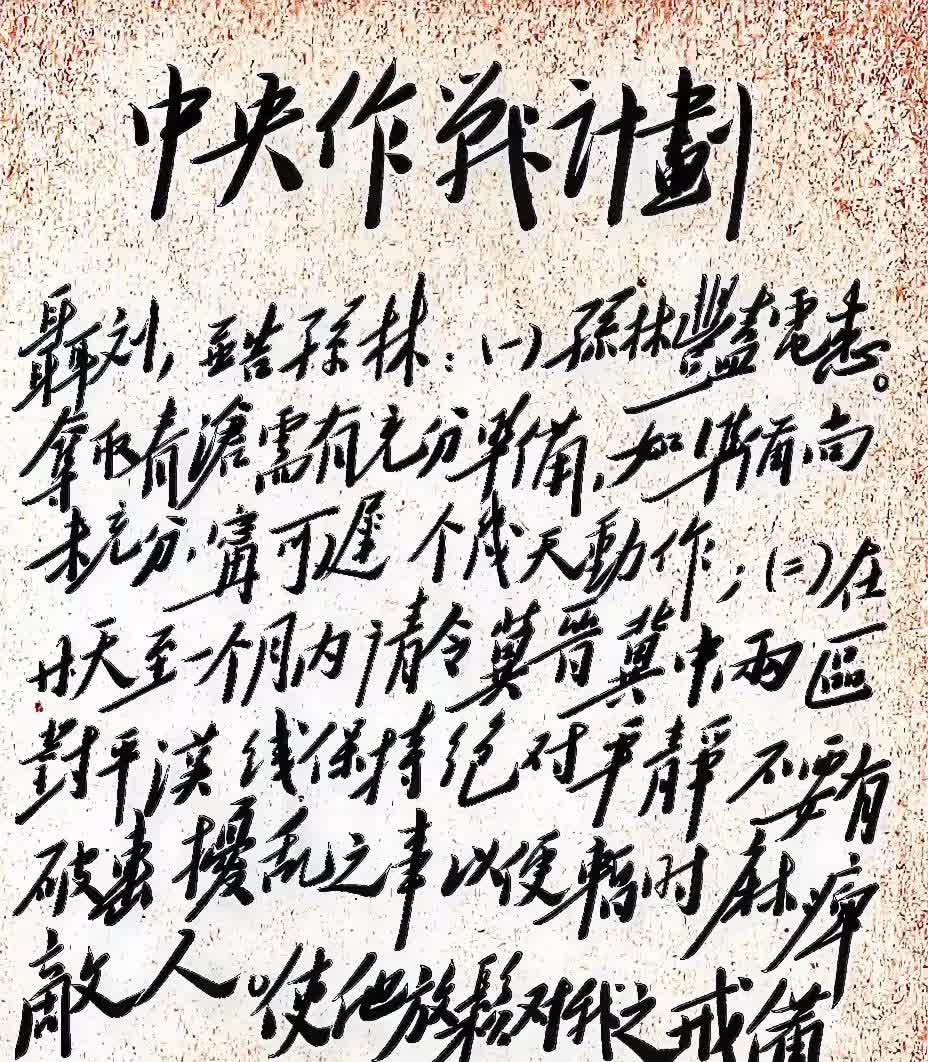 中央作戰計劃
聶刘,并告孫林:(一)孫林豔電悉。
奪取青滄需有充分準備,如準備尚
未充分,寧可遲个幾天動作;(二)在
廿天至一个月內请令冀晉冀中兩區
對平漢线保持绝对平靜不要有
破壞擾乱之事以便暫时麻痺
敵人。使他放鬆对我之戒備